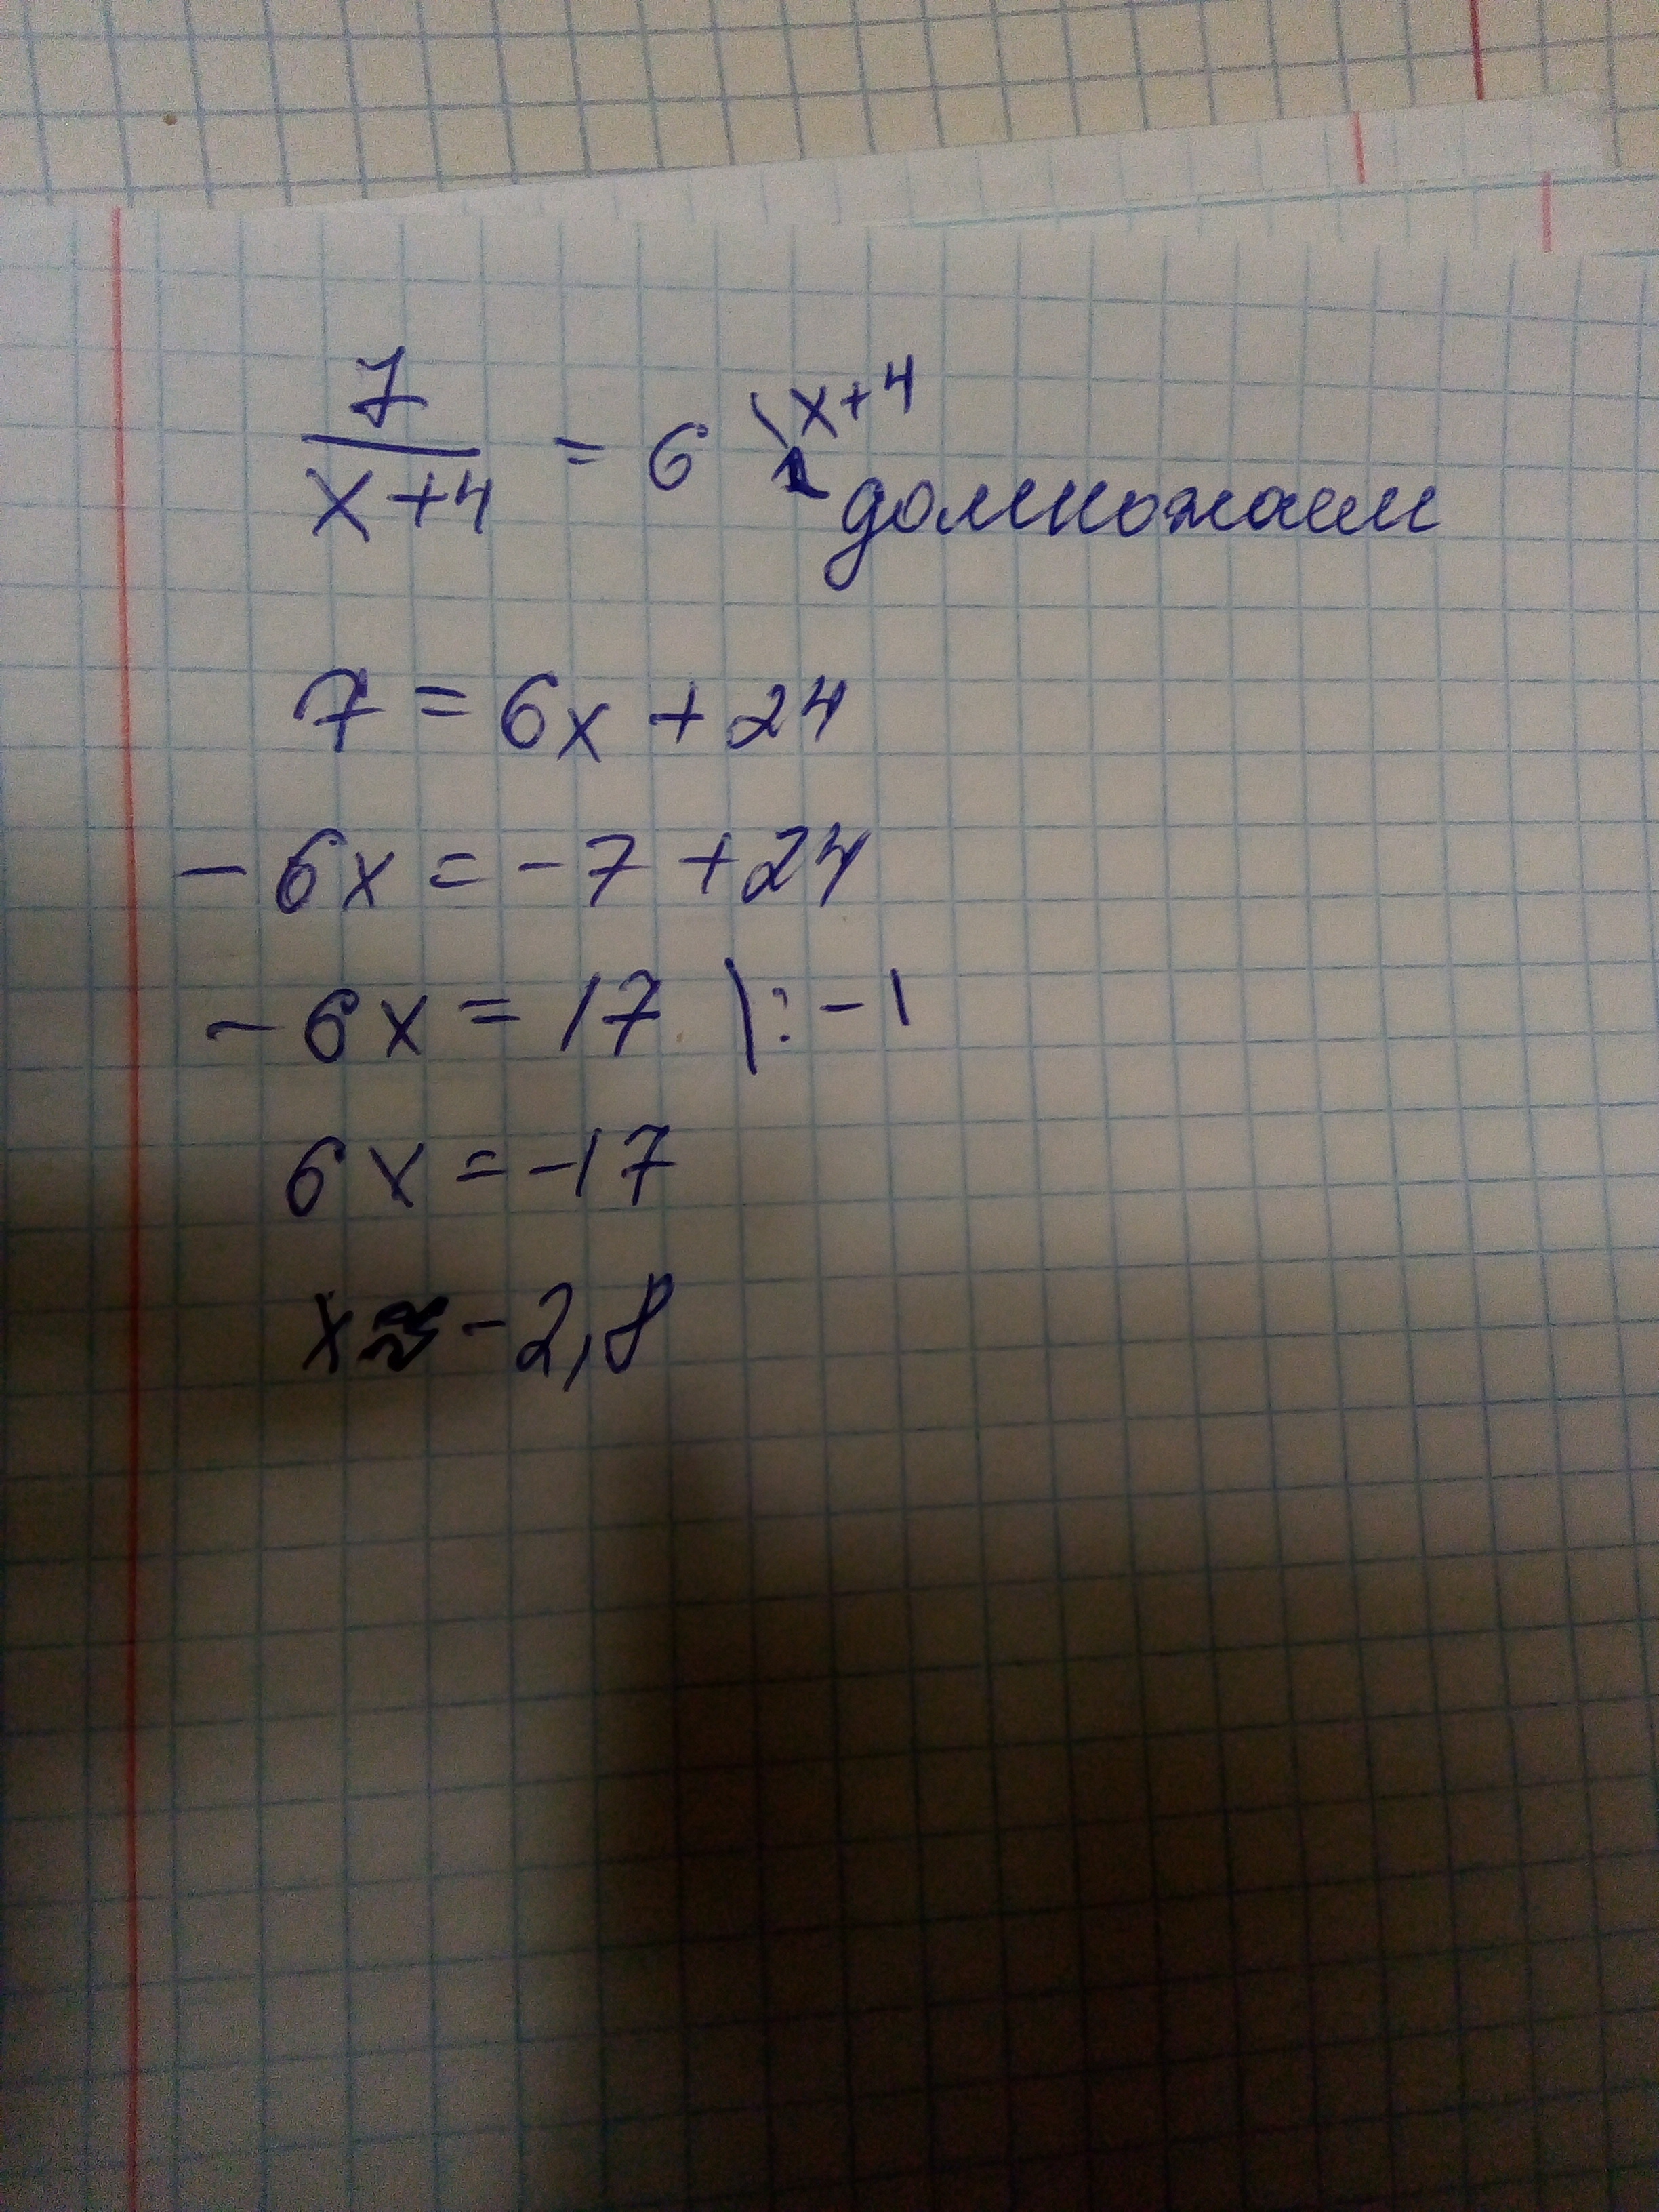 7
x+4 = 6 \x+4 домножаем
7 = 6x + 24
- 6x = -7 + 24
- 6x = 17 \: -1
6x = -17
x ≈ -2,8